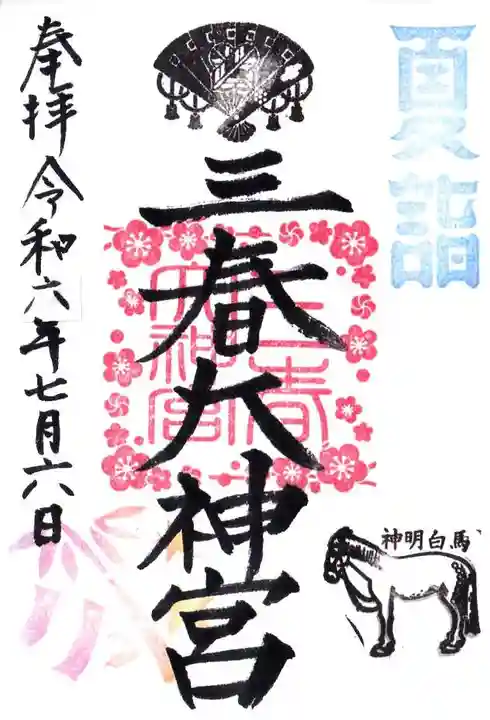 夏詣
三春大神宮
三春大神宮
神明白馬
奉拝 令和六年七月六日